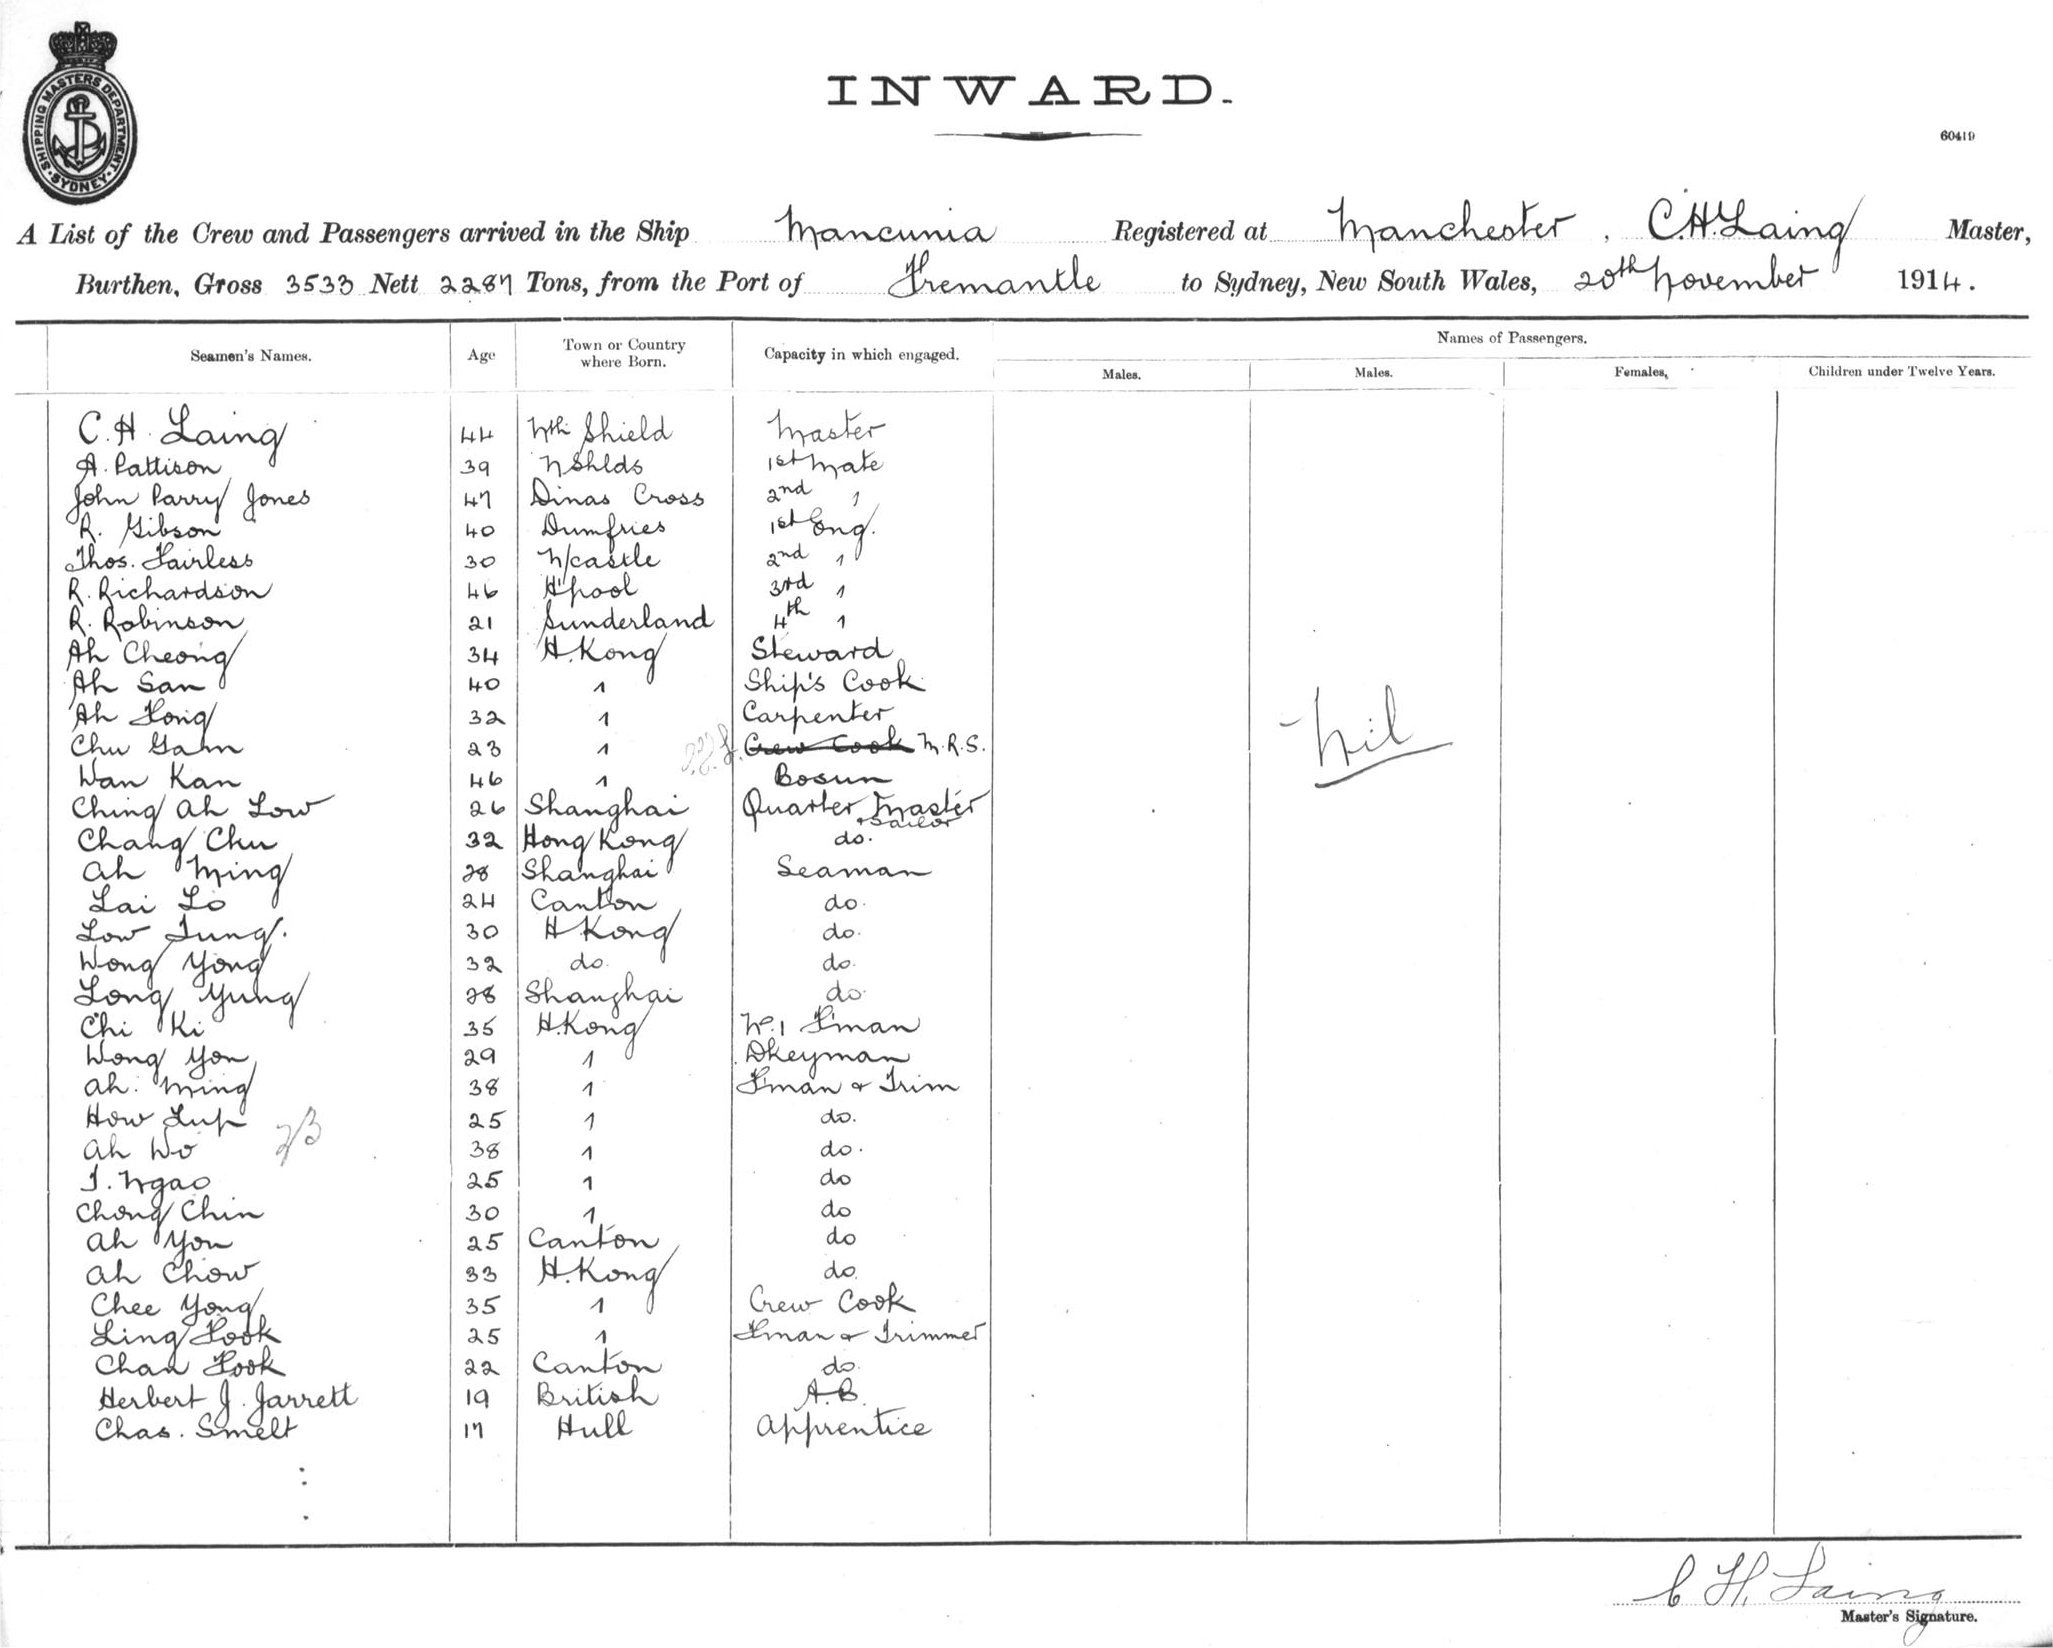 SHIPPING MASTERS DEPARTMENT · SYDNEY ·
INWARD.
60419
A List of the Crew and Passengers arrived in the Ship Mancunia Registered at Manchester, C.H. Laing Master,
Burthen, Gross 3533 Nett 2287 Tons, from the Port of Fremantle to Sydney, New South Wales, 20th November 1914.
Seamen's Names. Age Town or Country where Born. Capacity in which engaged. Names of Passengers.
Males. Males. Females. Children under Twelve Years.
C. H. Laing 44 Nth Shield Master
A. Pattison 39 N Shlds 1st Mate
John Parry Jones 47 Dinas Cross 2nd "
R. Gibson 40 Dumfries 1st Eng.
Thos. Fairless 30 N/castle 2nd "
R. Richardson 46 H'pool 3rd "
R. Robinson 21 Sunderland 4th "
Ah Cheong 34 H. Kong Steward
Ah San 40 " Ship's Cook
Ah Fong 32 " Carpenter
Chu Gam 23 " Crew Cook M.R.S.
Nil
Wan Kan 46 " Bosun
Ching Ah Low 26 Shanghai Quarter Master + Sailor
Chang Chu 32 Hong Kong do.
Ah Ming 28 Shanghai Seaman
Lai Lo 24 Canton do.
Low Tung. 30 H Kong do.
Wong Yong 32 do. do.
Long Yung 28 Shanghai do.
Chi Ki 35 H. Kong No. 1 F'man
Wong Yon 29 " Dkeyman
Ah. Ming 38 " F'man + Trim
How Lup 25 " do.
Ah Wo 38 " do.
I. Ngao 25 " do
Chong Chin 30 " do
Ah You 25 Canton do
Ah Chow 33 H. Kong do.
Chee Yong 35 " Crew Cook
Ling Fook 25 " F'man + Trimmer
Chan Fook 22 Canton do.
Herbert J. Jarrett 19 British A.B.
Chas. Smelt 17 Hull Apprentice
C H. Laing
Master's Signature.